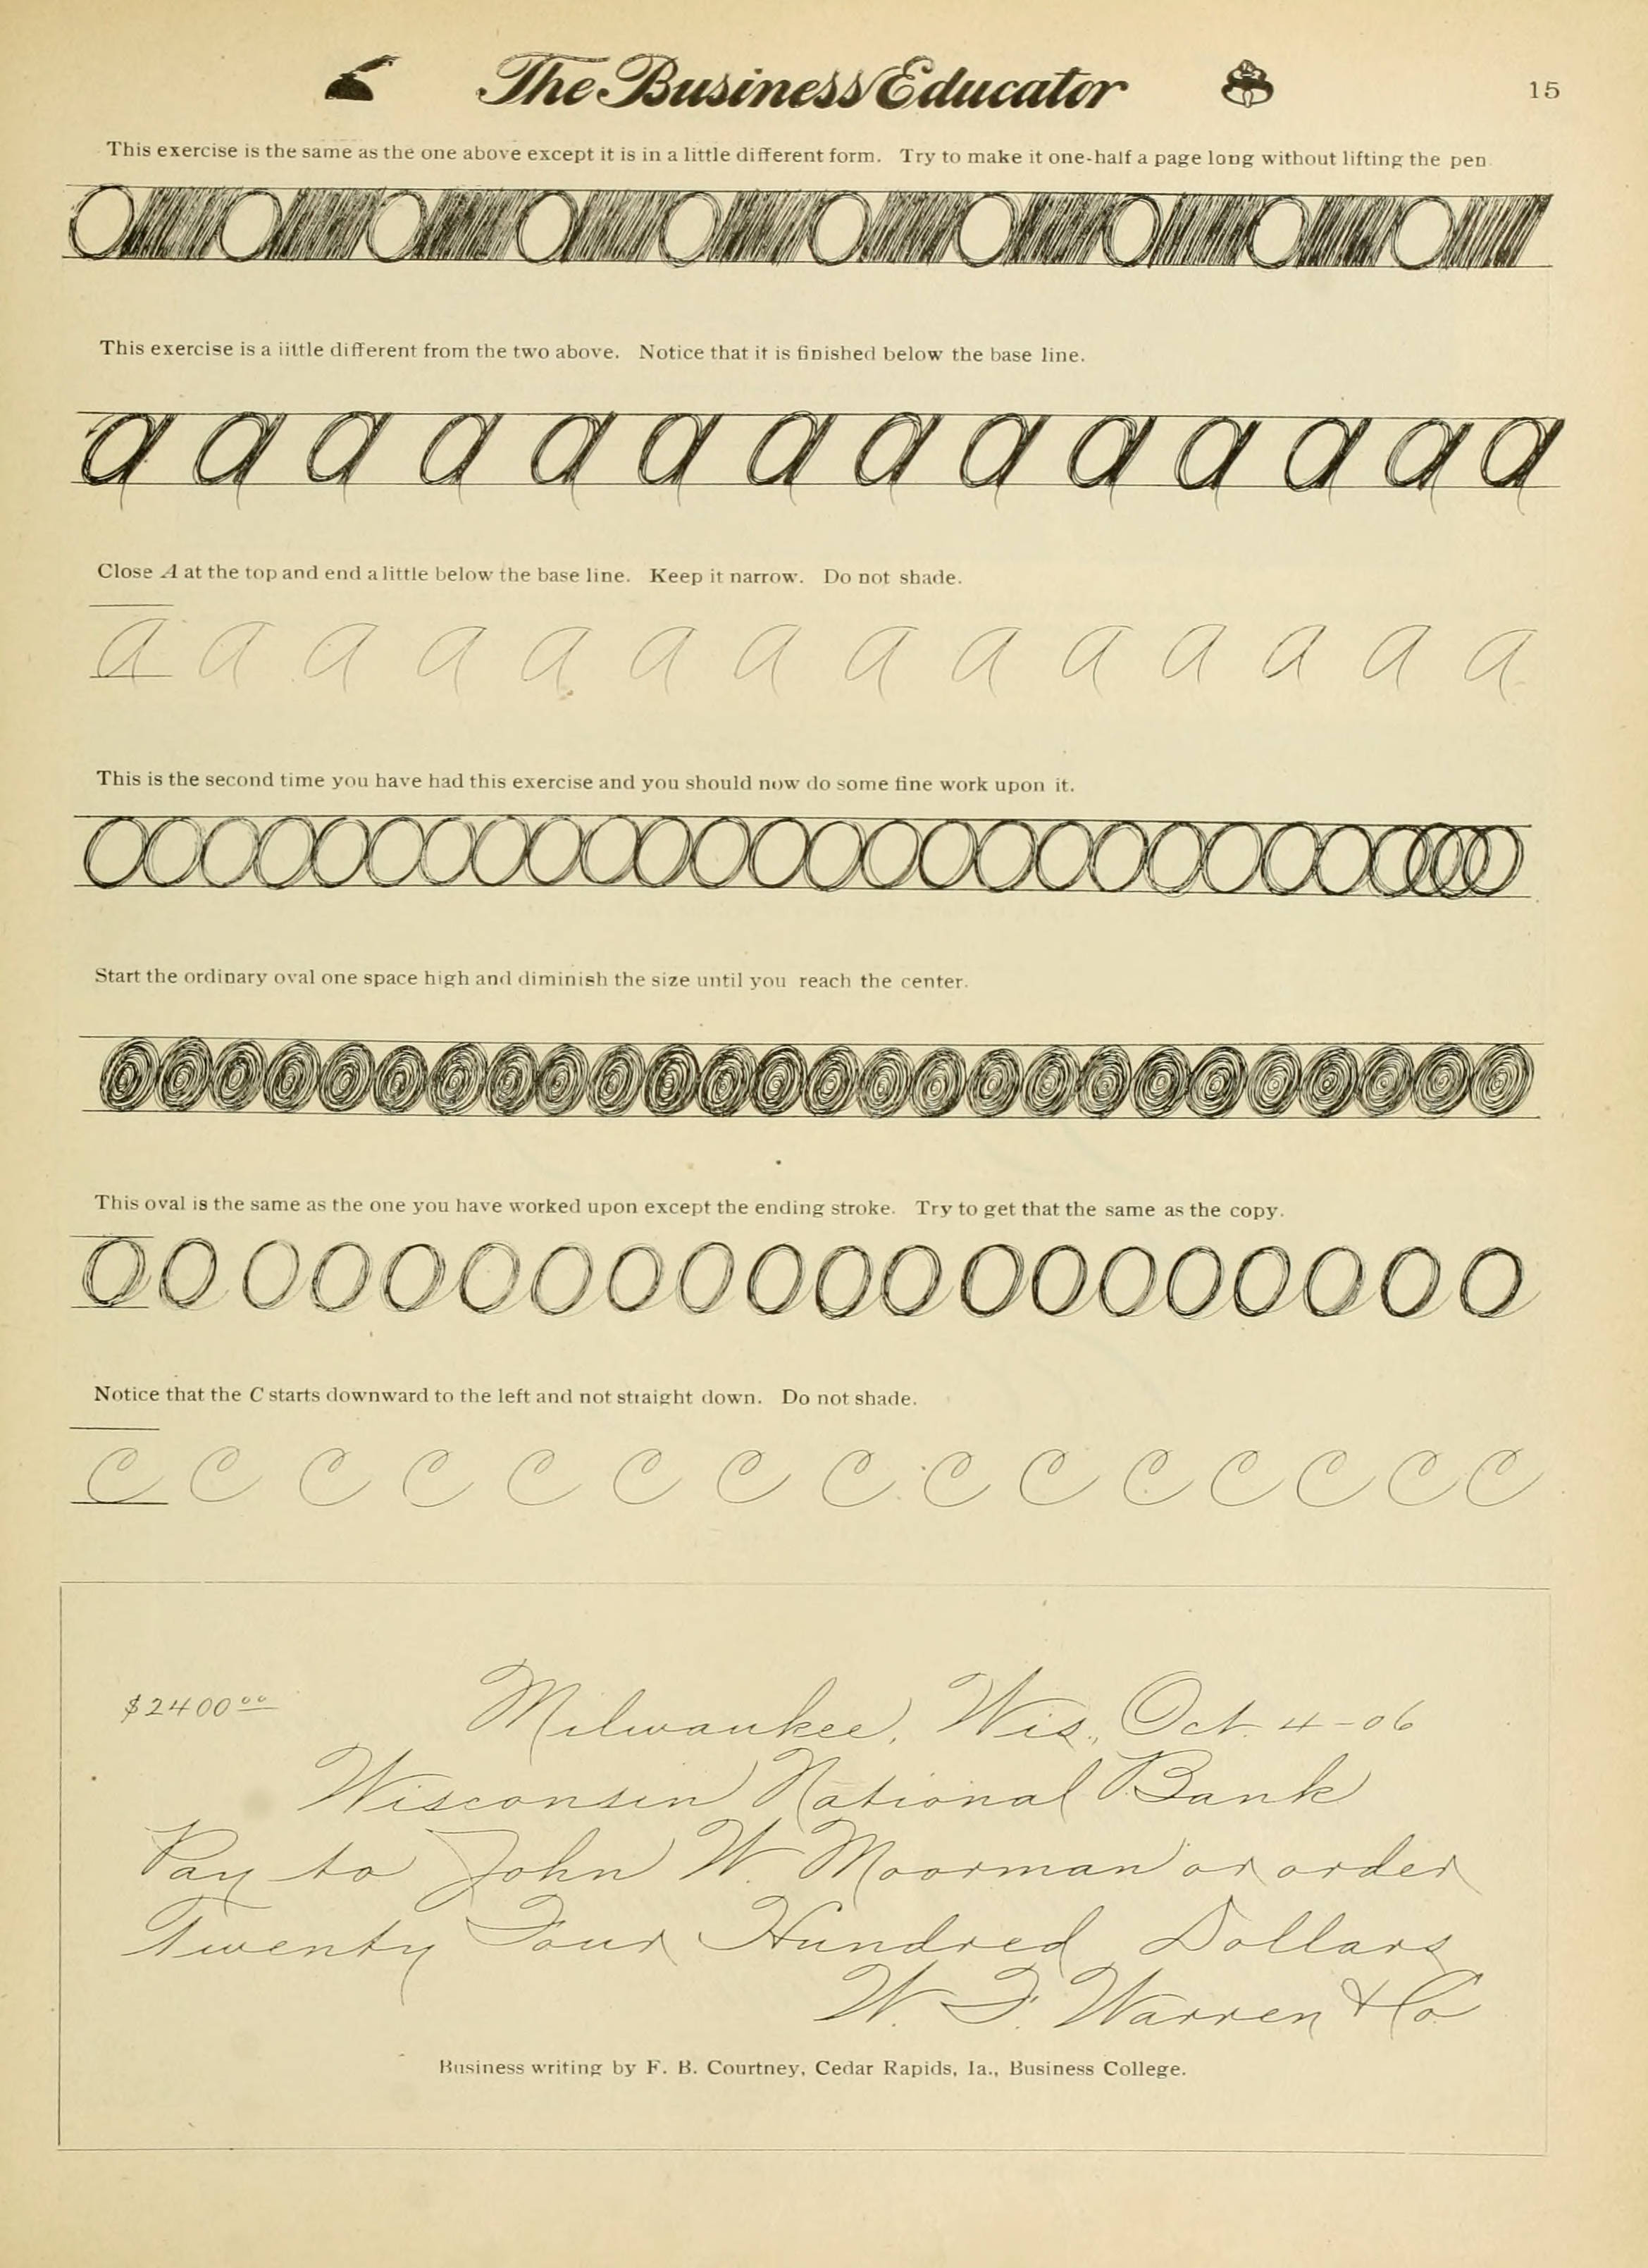 The Business Educator 15
This exercise is the same as the one above except it is in a little different form. Try to make it one-half a page long without lifting the pen
This exercise is a iittle different from the two above. Notice that it is finished below the base line.
a a a a a a a a a a a a a a
Close A at the top and end a little below the base line. Keep it narrow. Do not shade.
a a a a a a a a a a a a a a
This is the second time you have had this exercise and you should now do some fine work upon it.
Start the ordinary oval one space high and diminish the size until you reach the center.
This oval is the same as the one you have worked upon except the ending stroke. Try to get that the same as the copy.
O O O O O O O O O O O O O O O O O O O O O
Notice that the C starts downward to the left and not straight down. Do not shade.
C C C C C C C C C C C C C C
$2400 00 Milwaukee, Wis., Oct. 4-06
Wisconsin National Bank
Pay to John W. Moorman or order
Twenty Four Hundred Dollars
W. F. Warren & Co.
Business writing by F. B. Courtney, Cedar Rapids, Ia., Business College.